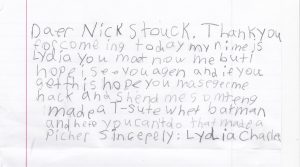 Daer Nick Stauck. Thankyou
for comeing today my nime is
Lydia you moot now me but I
hope I see you agen and if you
get this hope you masrgerme
back and shend me somteng
I made a T-sute whet batman
and here you canto that made a
Picher Sincerely: Lydia Charles